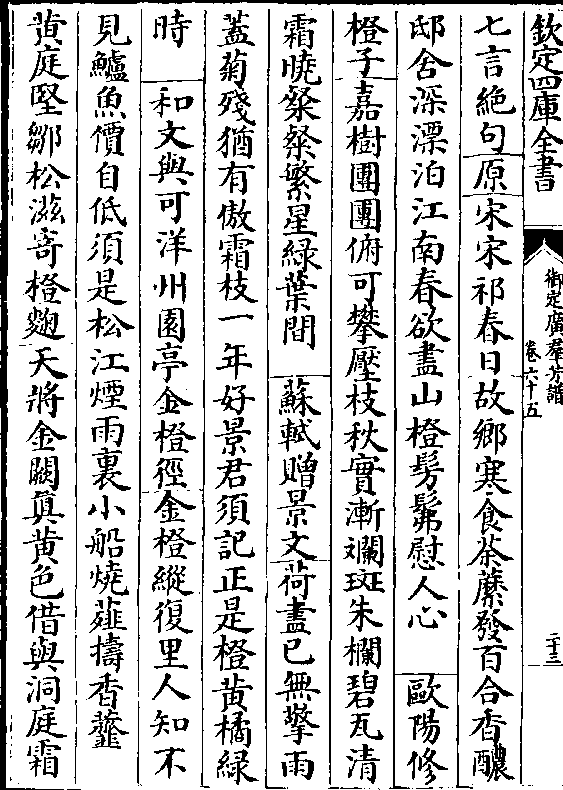 欽定四庫全書
御定廣羣芳譜
卷六十五
二十三
七言絶句原宋宋祁春日故鄉寒食荼䕷發百合香醲
邸舍深漂泊江南春欲盡山橙髣髴慰人心　歐陽修
橙子嘉樹團團俯可攀壓枝秋實漸斕斑朱欄碧瓦清
霜曉粲粲繁星緑葉間　蘇軾贈景文荷盡已無擎雨
蓋菊殘猶有傲霜枝一年好景君須記正是橙黄橘緑
時　和文與可洋州園亭金橙徑金橙縱復里人知不
見鱸魚價自低須是松江煙雨裏小船燒薤擣香虀
黄庭堅鄒松滋寄橙麴天將金闕真黄色借與洞庭霜